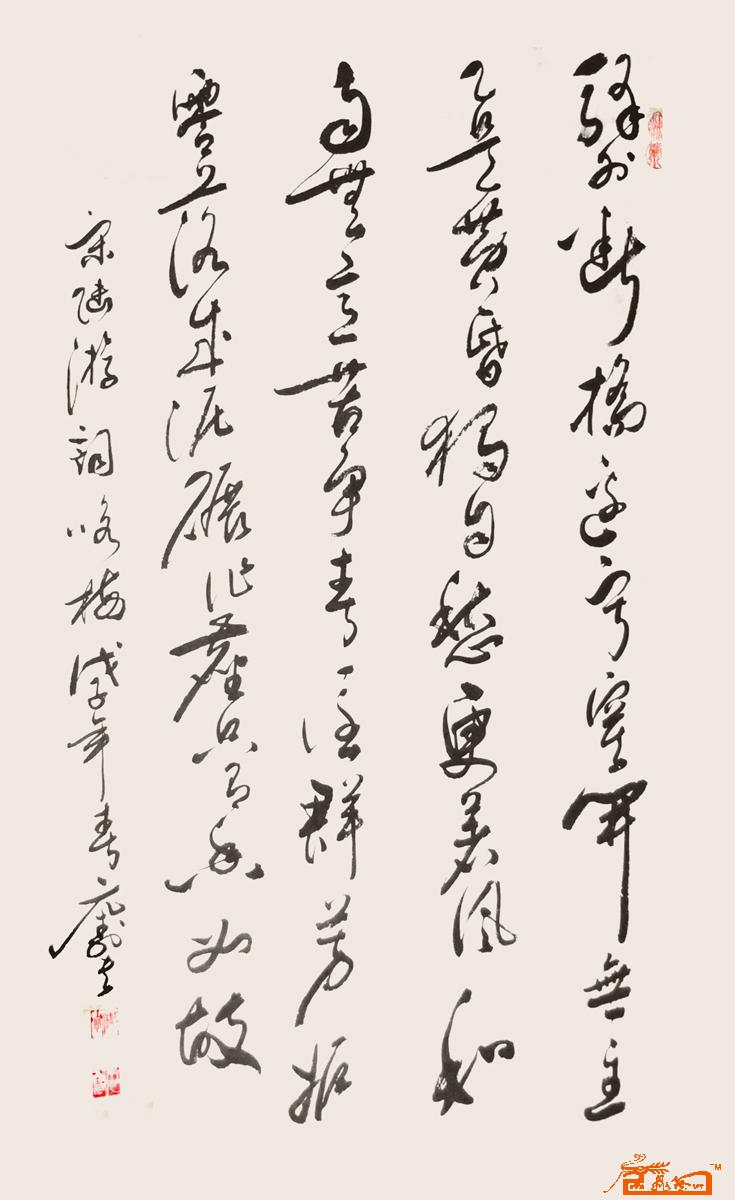 驿外断橋边寂寞開無主
已是黄昏獨自愁更著風和
雨無意苦争春一任群芳妒
零落成泥碾作塵只有香如故
宋陆游詞咏梅戊子年春